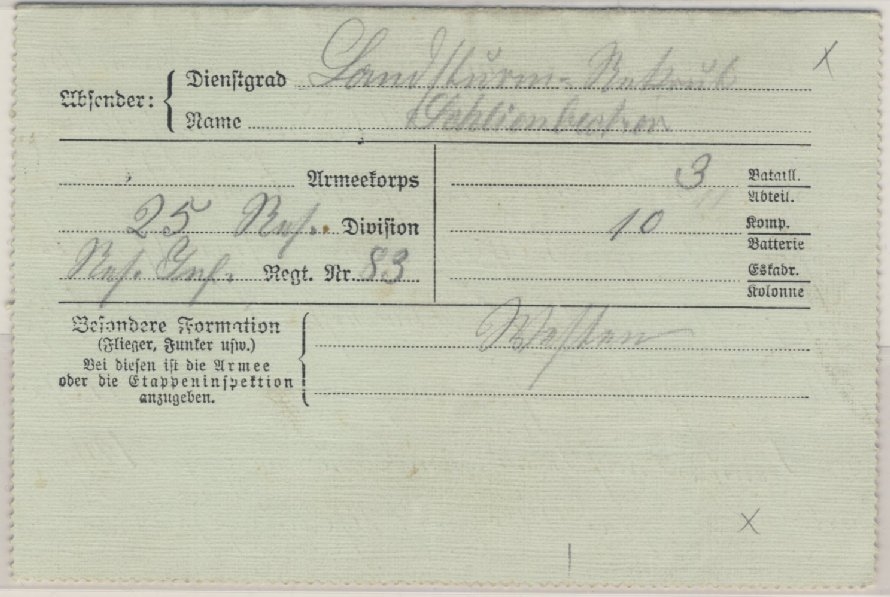 Absender: Dienstgrad Landsturm-Rekrut
Name
Armeekorps 3 Bataill.
Abteil.
25 Res. Division 10 Komp.
Batterie
Res. Inf. Regt. Nr. 83 Eskadr.
Kolonne
Besondere Formation
(Flieger, Funker usw.) Westen
Bei diesen ist die Armee
oder die Etappeninspektion
anzugeben.